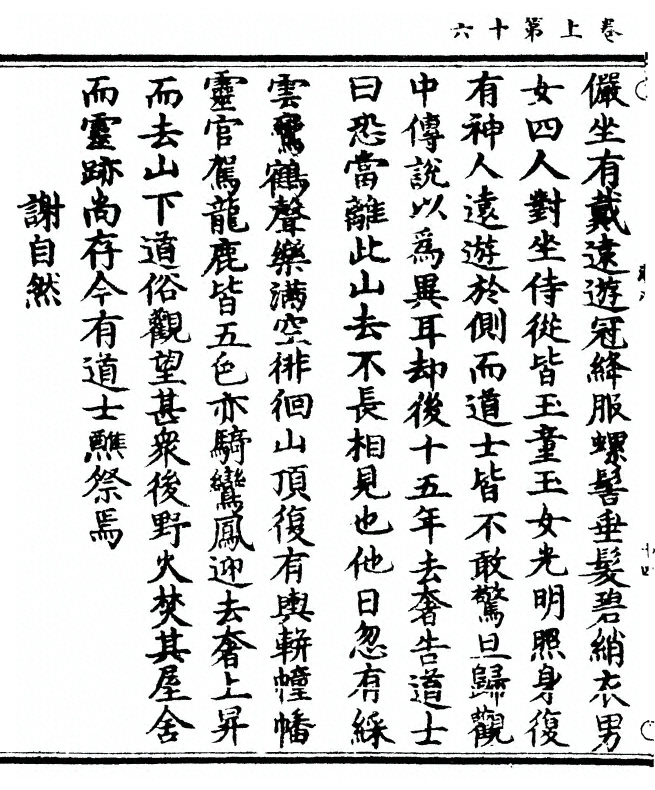 卷上第十六
儼坐有戴遠遊冠絳服螺髻垂髮碧綃衣男
女四人對坐侍從皆玉童玉女光明照身復
有神人遠遊於側而道士皆不敢驚旦歸觀
中傳說以爲異耳却後十五年去奢告道士
曰恐當離此山去不長相見也他日忽有綵
雲鸞鶴聲樂滿空徘徊山頂復有輿輧幢幡
靈官駕龍鹿皆五色亦騎鸞鳳迎去奢上昇
而去山下道俗觀望甚衆後野火焚其屋舍
而靈跡尚存今有道士醮祭焉
謝自然